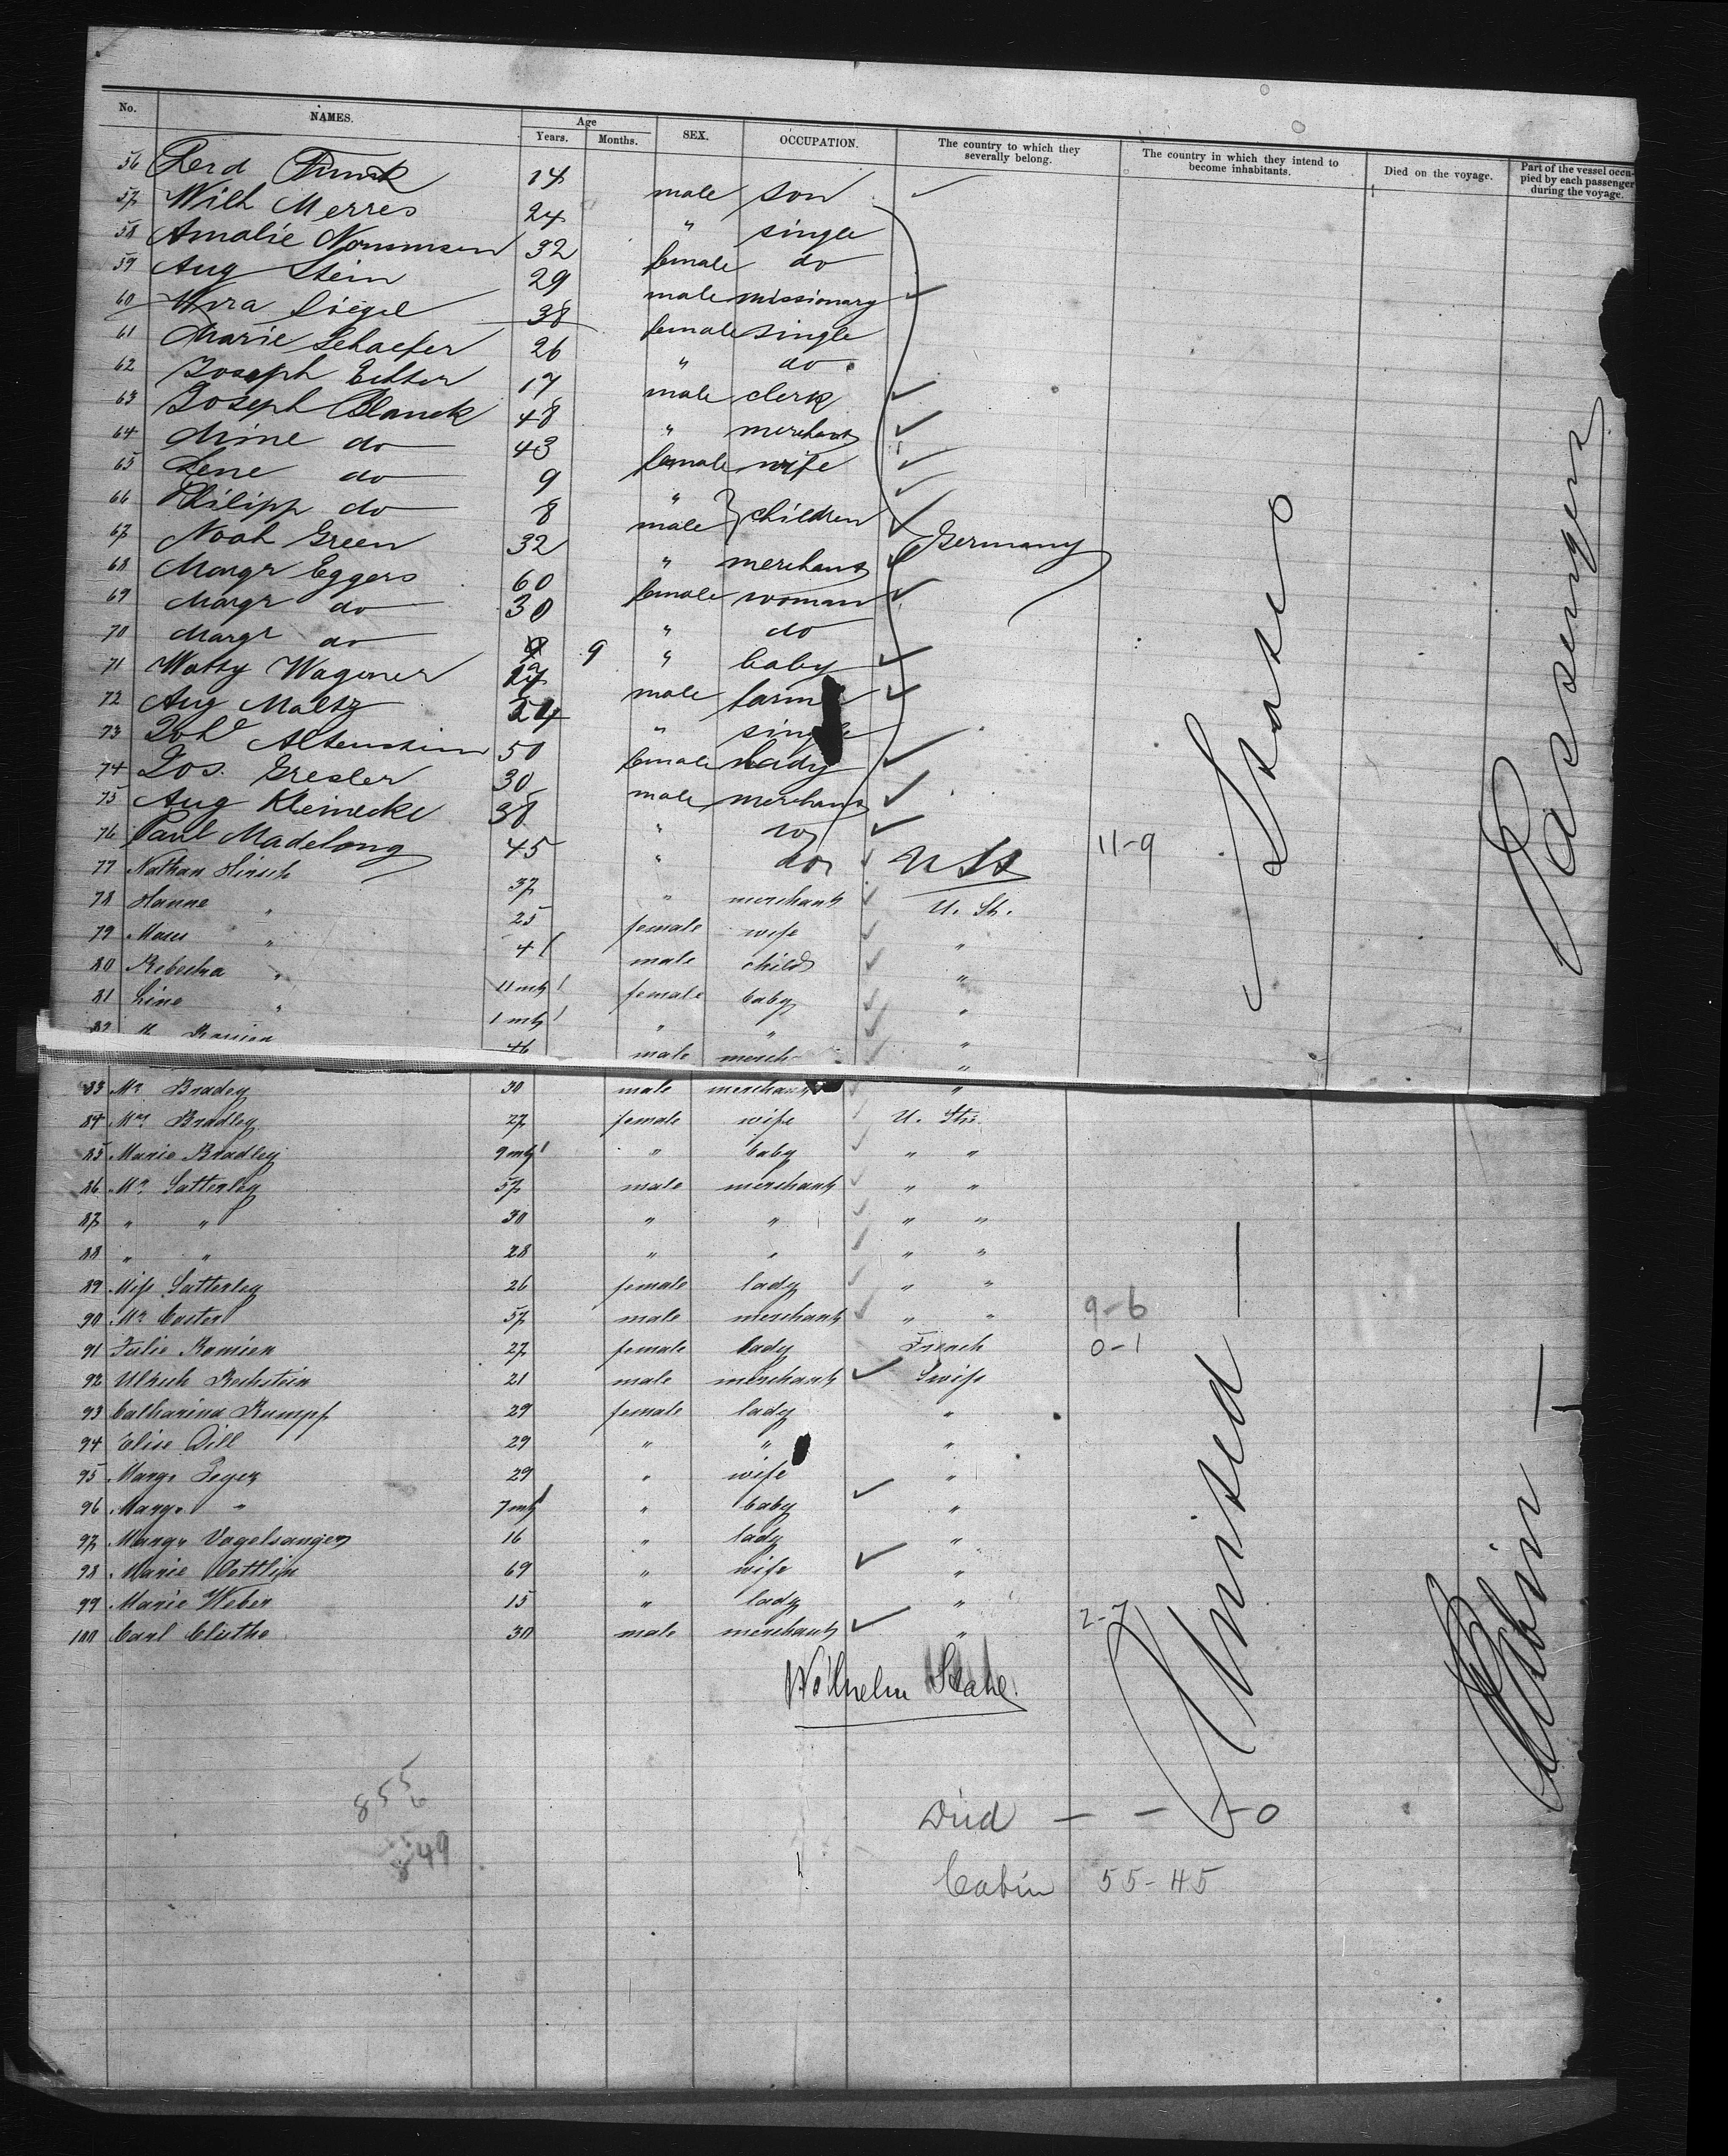 No. NAMES. Age Years. Months. SEX. OCCUPATION. The country to which they severally belong. The country in which they intend to become inhabitants. Died on the voyage. Part of the vessel occupied by each passenger during the voyage.
56 Ferd 14 male son
57 Wilh Merres 24 " single
58 Amalie Nommsen 32 female do
59 Aug Stein 29 male missionary
60 Siegel 38 female single
61 Marie Schaefer 26 " do
62 Joseph 17 male clerk
63 Joseph Blanck 48 " merchant
64 Mine do 43 female wife
65 Lene do 9 "
66 Philipp do 8 male children
67 Noah Green 32 " merchant Germany
68 Margr Eggers 60 female woman
69 Margr do 30 " do
70 Margr do 9 " baby
71 Wagener male
72 Aug Maltz " single
73 50 female lady
74 Jos. Gresler 30 male merchant
75 Aug Kleinecke 38 " do
76 Paul Madelong 45 " do U St 11-9
77 Nathan Hirsch 37 " merchant U. St.
78 Hanne " 25 female wife "
79 Moses " 4 male child "
80 Rebecka " 11 mths female baby "
81 Line " 1 mth " " "
82 46 male merch "
83 Mr Bradey 30 male merchant "
84 Mrs Bradley 27 female wife U. Sts.
85 Marie Bradley 9 mths " baby " "
86 Mr. Satterley 57 male merchant " "
87 " " 30 " " " "
88 " " 28 " " " "
89 Miss Satterley 26 female lady " "
90 Mr Caster 57 male merchant " " 9-6
91 Julie Ramien 27 female lady French 0-1
92 Ulrich Rechstein 21 male merchant Swiss
93 Catharina Rumpf 29 female lady "
94 Elise Dill 29 " " "
95 Margr 29 " wife "
96 Margr " 7 mths " baby "
97 Margr Vogelsanger 16 " lady "
98 Marie 69 " wife "
99 Marie Weber 15 " lady "
100 Carl Cluthe 30 male merchant " 2-7
United States
Cabin Passengers
Wilhelm
Died - - 0-0
Cabin 55-45
855
6
849